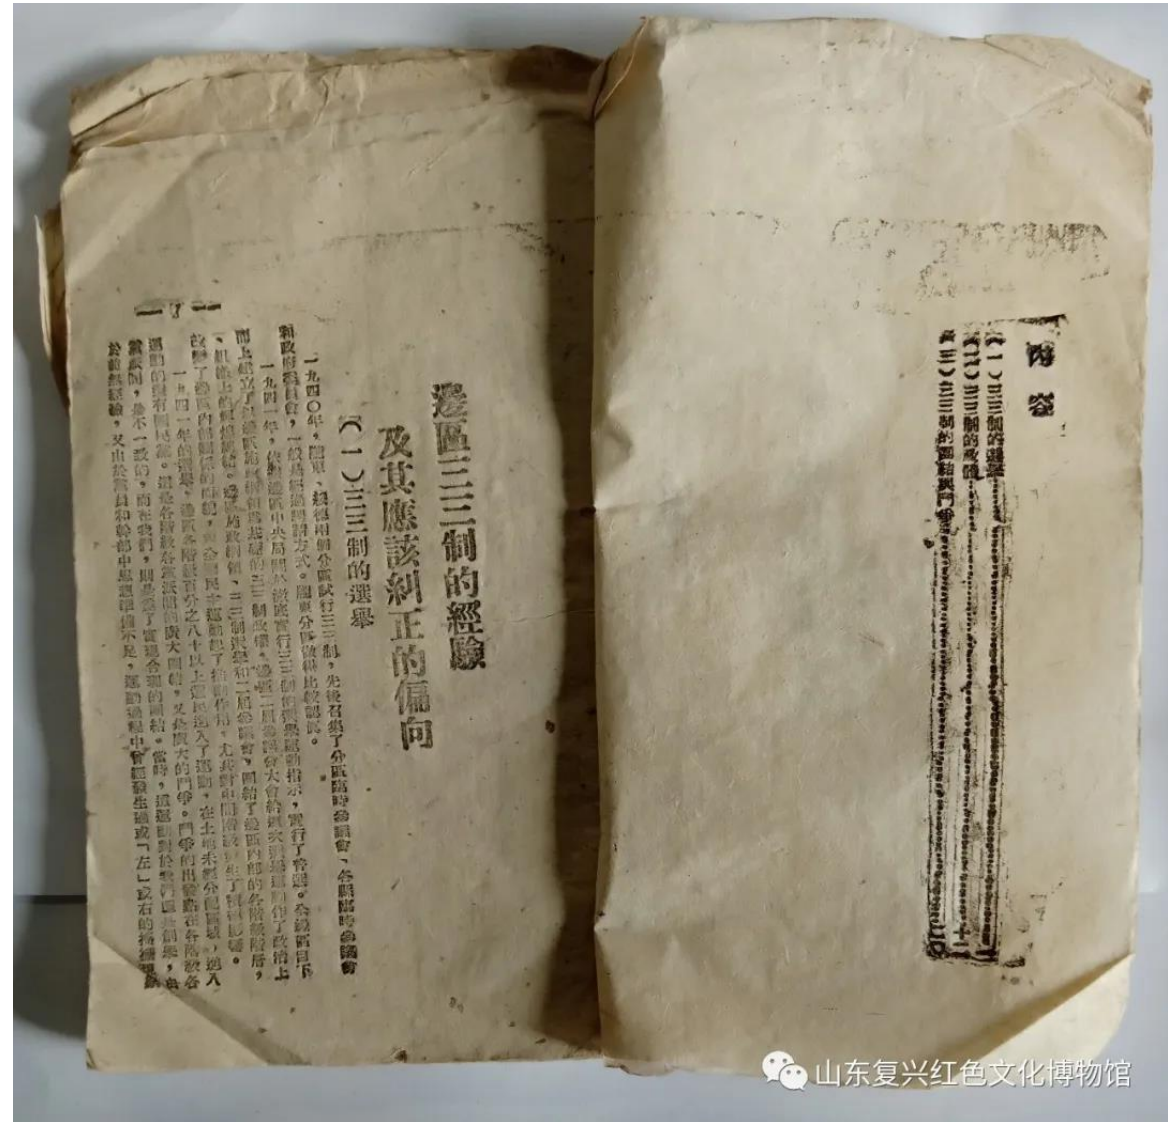 內容
(一)三三制的選舉……一
(二)三三制的政權……十二
(三)三三制的團結與鬥爭……二〇
邊區三三制的經驗
及其應該糾正的偏向
(一)三三制的選舉
一九四〇年,隴東、綏德兩個分區試行三三制,先後召集了分區臨時參議會、各縣臨時參議會
和政府委員會,一般是經過聘請方式。隴東分區做得比較認眞。
一九四一年,依照邊區中央局關於澈底實行三三制的選舉運動指示,實行了普選。全邊區自下
而上建立了以邊區施政綱領為基礎的三三制政權,邊區二屆參議會大會給這次選舉運動作了政治上
、組織上的 總結。邊區施政綱領、三三制選舉和二屆參議會,團結了邊區內部的各階級階層,
改變了邊區內部關係的面貌,對全國民主運動起了推動作用,尤其對中間階級發生了積極影響。
一九四一年的選舉,邊區各階級百分之八十以上選民進入了運動,在土地未經分配區域,進入
運動的還有國民黨。這是各階級各黨派間的廣大團結,又是廣大的鬥爭。鬥爭的出發點在各階級各
黨派間,是不一致的,而在我們,則是為了實現合理的團結。當時,這運動對於我們還是創舉,由
於前無經驗,又由於黨員和幹部中思想準備不足,運動過程中曾經發生過或「左」或右的搖擺現象
一
山东复兴红色文化博物馆